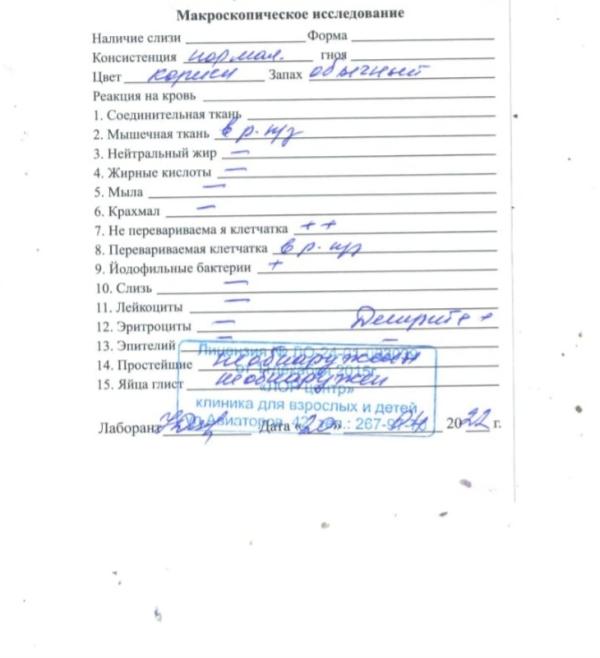 Макроскопическое исследование
Наличие слизи Форма
Консистенция нормал. гноя
Цвет коричн Запах обычный
Реакция на кровь
1. Соединительная ткань
2. Мышечная ткань в р. п/з
3. Нейтральный жир —
4. Жирные кислоты —
5. Мыла —
6. Крахмал —
7. Не перевариваема я клетчатка ++
8. Перевариваемая клетчатка в р. п/з
9. Йодофильные бактерии +
10. Слизь —
11. Лейкоциты —
12. Эритроциты — Детрит + +
13. Эпителий — —
14. Простейшие не обнаружены
15. Яйца глист не обнаружен
Лицензия № ЛО-24-01
2015г.
«ЛОР центр»
клиника для взрослых и детей
Авиаторов, тел.: 267-9
Лаборант Дата «20» 04 2022 г.